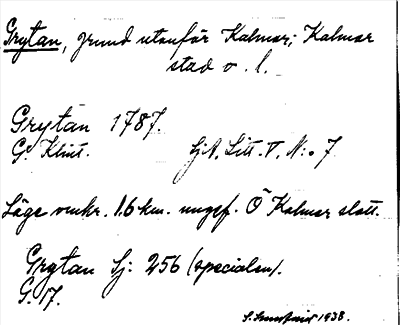 Grytan, grund utanför Kalmar; Kalmar
stad o. l.
Grytan 1787.
G. Klint. SjA. Litt. V, N:o 7
Läge omkr. 1.6 km. ungef. Ö Kalmar slott.
Grytan Sj: 256 (specialen).
G. 17.
1938.